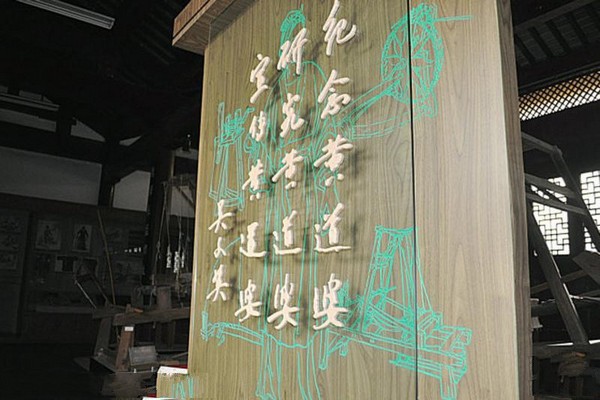 纪念黄道婆
研究黄道婆
宣传黄道婆
吴文英